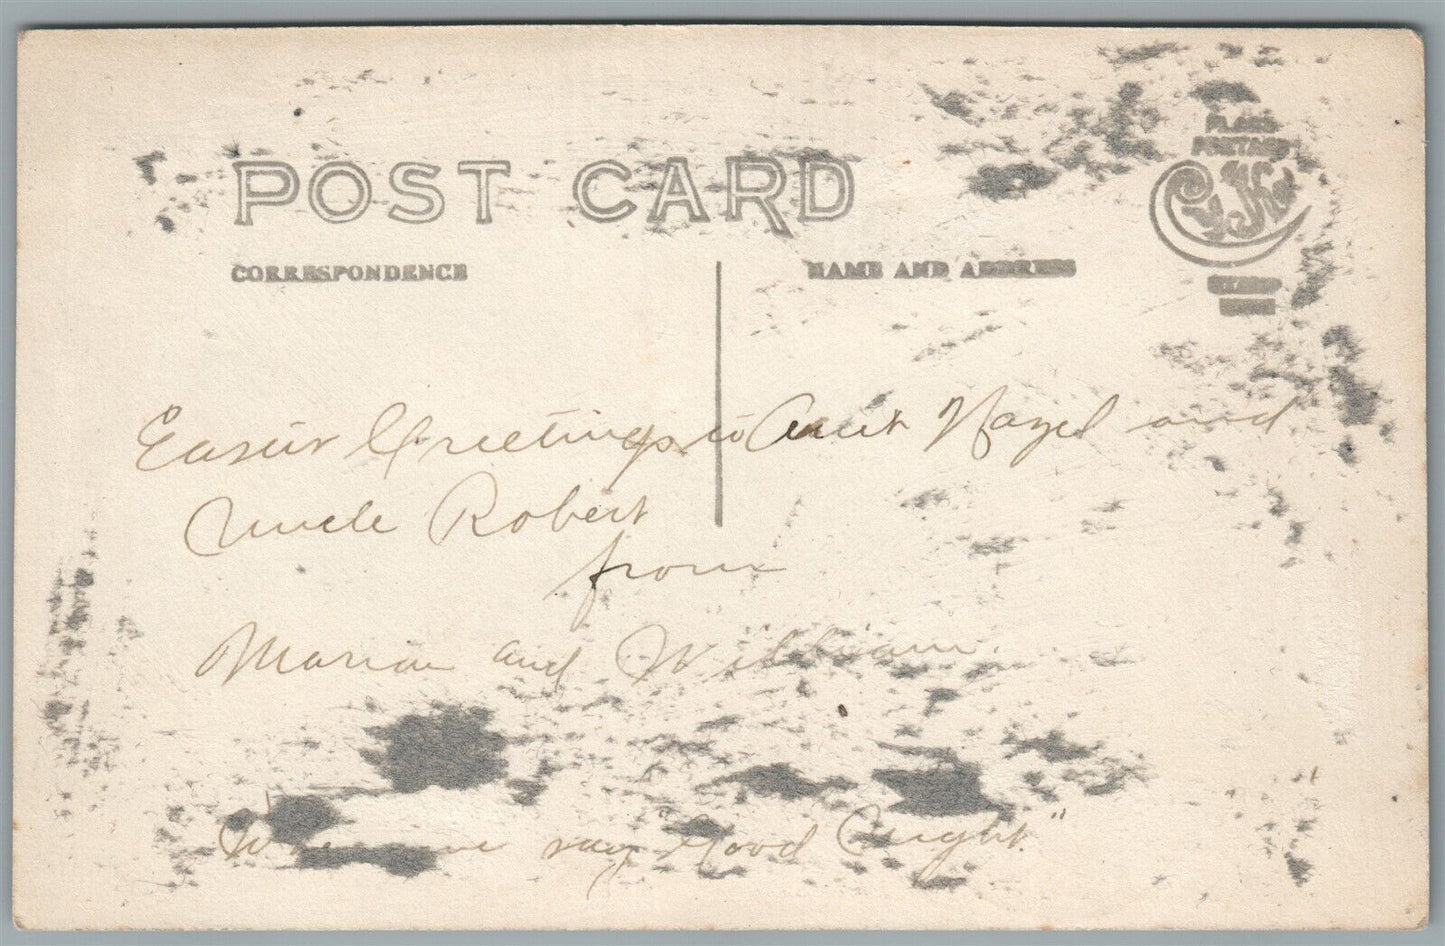 PLACE
POSTAGE
POST CARD
CORRESPONDENCE
NAME AND ADDRESS
STAMP
HERE
Easter Greetings to Aunt Hazel and
Uncle Robert
from
Marian and William.
we say Good Night"